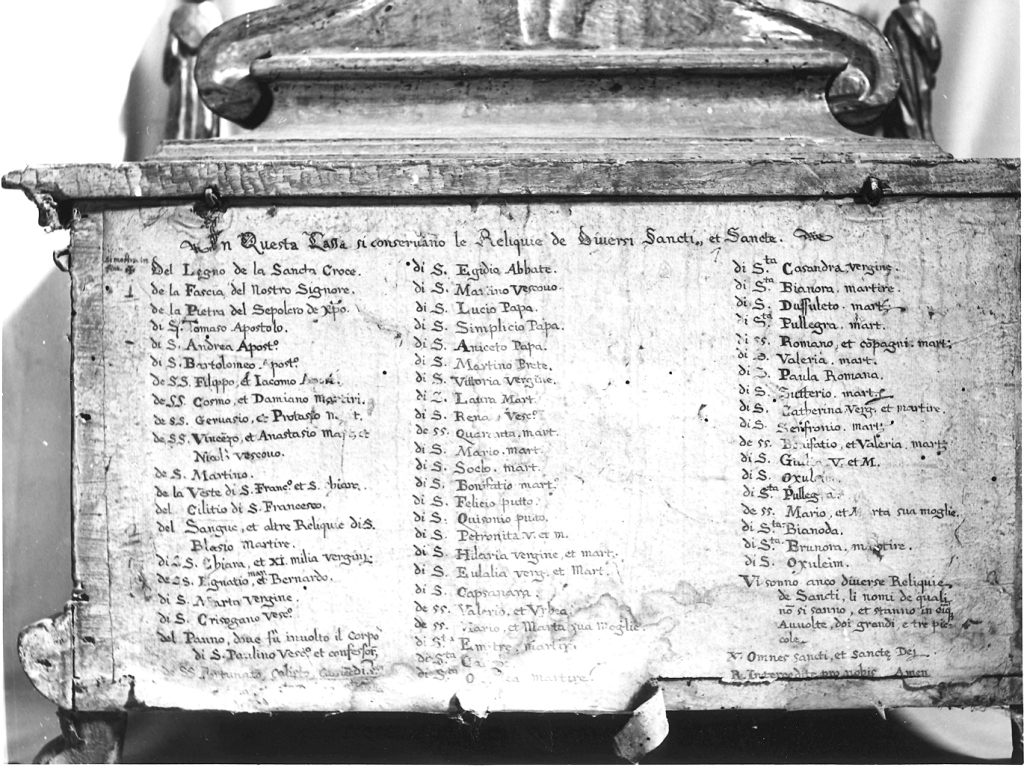 In Questa Cassa si conservano le Reliquie de Diversi Sancti, et Sancte.
Del Legno de la Sancta Croce.
de la Fascia del Nostro Signore.
de la Pietra del Sepolcro de Xpo.
di S. Tomaso Apostolo.
di S. Andrea Apost.º
di S. Bartolomeo Apost.º
de SS. Filippo, et Iacomo
de SS. Cosmo, et Damiano Martiri.
de SS. Gervasio, et Protasio
de SS. Vincēzo, et Anastasio Mar. et
Nicolo vescovo.
de S. Martino.
de la Veste di S. Franc.º et S. Chiara.
del Cilitio di S. Francesco.
del Sangue, et altre Reliquie di S.
Blasio Martire.
di S. Chiara, et XI. milia vergini.
de SS. Ignatio, et Bernardo.
di S. Marta vergine.
di S. Crisogano Vesc.º
del Panno, dove fù involto il corpo
di S. Paulino Vesc.º et confessor,
de SS. Fortunato, Calisto,
di S. Egidio Abbate.
di S. Martino Vescovo.
di S. Lucio Papa.
di S. Simplicio Papa.
di S. Aniceto Papa.
di S. Martino Prete.
di S. Vittoria vergine.
di S. Laura Mart.
di S. Rena Vesc.º
de SS. Quaranta mart.
di S. Mario. mart.
di S. Socio. mart.
di S. Bonifatio mart.
di S. Felicio putto.
di S. Quisonio putto.
di S. Petronita V. et m.
di S. Hilaria vergine, et mart.
di S. Eulalia verg. et Mart.
di S. Capsanara.
de SS. Valerio, et
de SS. Mario, et Marta sua moglie.
di S.ta martir.
de S.ta
di S.ta martire.
di S.ta Casandra vergine.
di S.ta Bianora, martire.
di S. Dussuleto. mart.
di S.ta Pullegra. mart.
di SS. Romano, et cōpagni. mart.
di S. Valeria. mart.
di S. Paula Romana.
di S. mart.
di S. Catherina Verg. et martire.
di S. Senfronio. mart.
de SS. Bonifatio, et Valeria. mart.
di S. Giulia V. et M.
di S. Oxuleim.
di S.ta Pullegra.
de SS. Mario, et Marta sua moglie.
di S.ta Bianoda.
di S.ta Brunora. martire.
di S. Oxuleim.
Vi sonno anco diverse Reliquie
de Sancti, li nomi de quali
nō si sanno, et stanno in
Auuolte, doi grandi, e tre pic=
cole.
V. Omnes sancti, et Sanctę Dei
R. Intercedite pro nobis. Amen